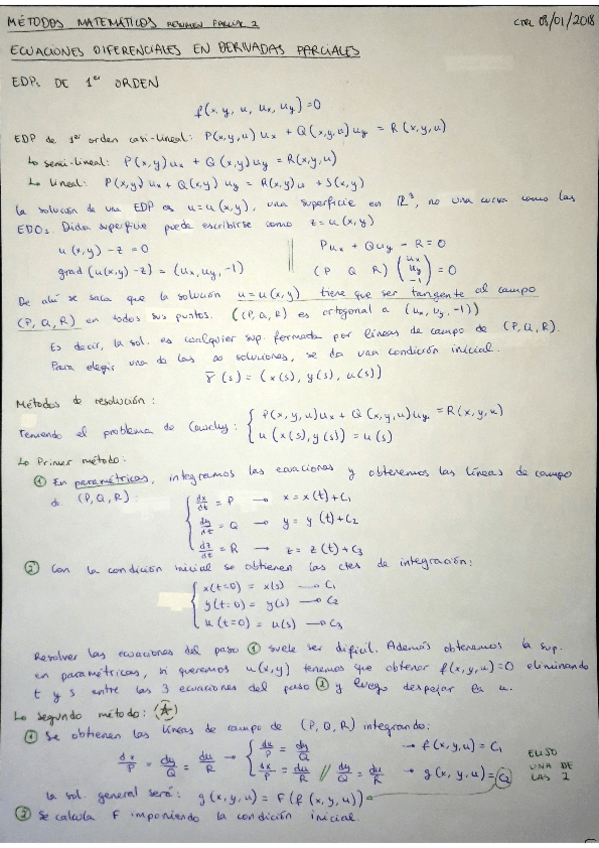 MÉTODOS MATEMÁTICOS RESUMEN PARCIAL 2 03/01/2018
ECUACIONES DIFERENCIALES EN DERIVADAS PARCIALES
EDPs DE 1er ORDEN
f(x, y, u, ux, uy) = 0
EDP de 1er orden casi-lineal: P(x,y,u) ux + Q(x,y,u) uy = R(x,y,u)
↳ semi-lineal: P(x,y) ux + Q(x,y) uy = R(x,y,u)
↳ lineal: P(x,y) ux + Q(x,y) uy = R(x,y) u + S(x,y)
La solución de una EDP es u = u(x,y), una superficie en ℝ³, no una curva como las
EDOs. Dicha superficie puede escribirse como z = u(x,y)
u(x,y) - z = 0 || Pux + Quy - R = 0
grad(u(x,y) - z) = (ux, uy, -1) || (P Q R) (ux uy -1) = 0
De ahí se saca que la solución u = u(x,y) tiene que ser tangente al campo
(P, Q, R) en todos sus puntos. ((P, Q, R) es ortogonal a (ux, uy, -1))
Es decir, la sol. es cualquier sup. formada por líneas de campo de (P, Q, R).
Para elegir una de las ∞ soluciones, se da una condición inicial.
γ̄(s) = (x(s), y(s), u(s))
Métodos de resolución:
Teniendo el problema de Cauchy: { P(x, y, u) ux + Q(x, y, u) uy = R(x, y, u)
u(x(s), y(s)) = u(s)
↳ Primer método:
① En paramétricas, integramos las ecuaciones y obtenemos las líneas de campo
de (P, Q, R): { dx/dt = P → x = x(t) + C1
dy/dt = Q → y = y(t) + C2
dz/dt = R → z = z(t) + C3
② Con la condición inicial se obtienen las ctes de integración:
{ x(t=0) = x(s) → C1
y(t=0) = y(s) → C2
u(t=0) = u(s) → C3
Resolver las ecuaciones del paso ① suele ser difícil. Además obtenemos la sup.
en paramétricas, si queremos u(x,y) tenemos que obtener f(x,y,u)=0 eliminando
t y s entre las 3 ecuaciones del paso ② y luego despejar la u.
↳ Segundo método: (A)
① Se obtienen las líneas de campo de (P, Q, R) integrando:
dx/P = dy/Q = du/R → { dx/P = dy/Q → f(x,y,u) = C1
dx/P = du/R // dy/Q = du/R → g(x, y, u) = C2
ELIJO
UNA DE
LAS 2
la sol. general será: g(x,y,u) = F(f(x,y,u))
② Se calcula F imponiendo la condición inicial.